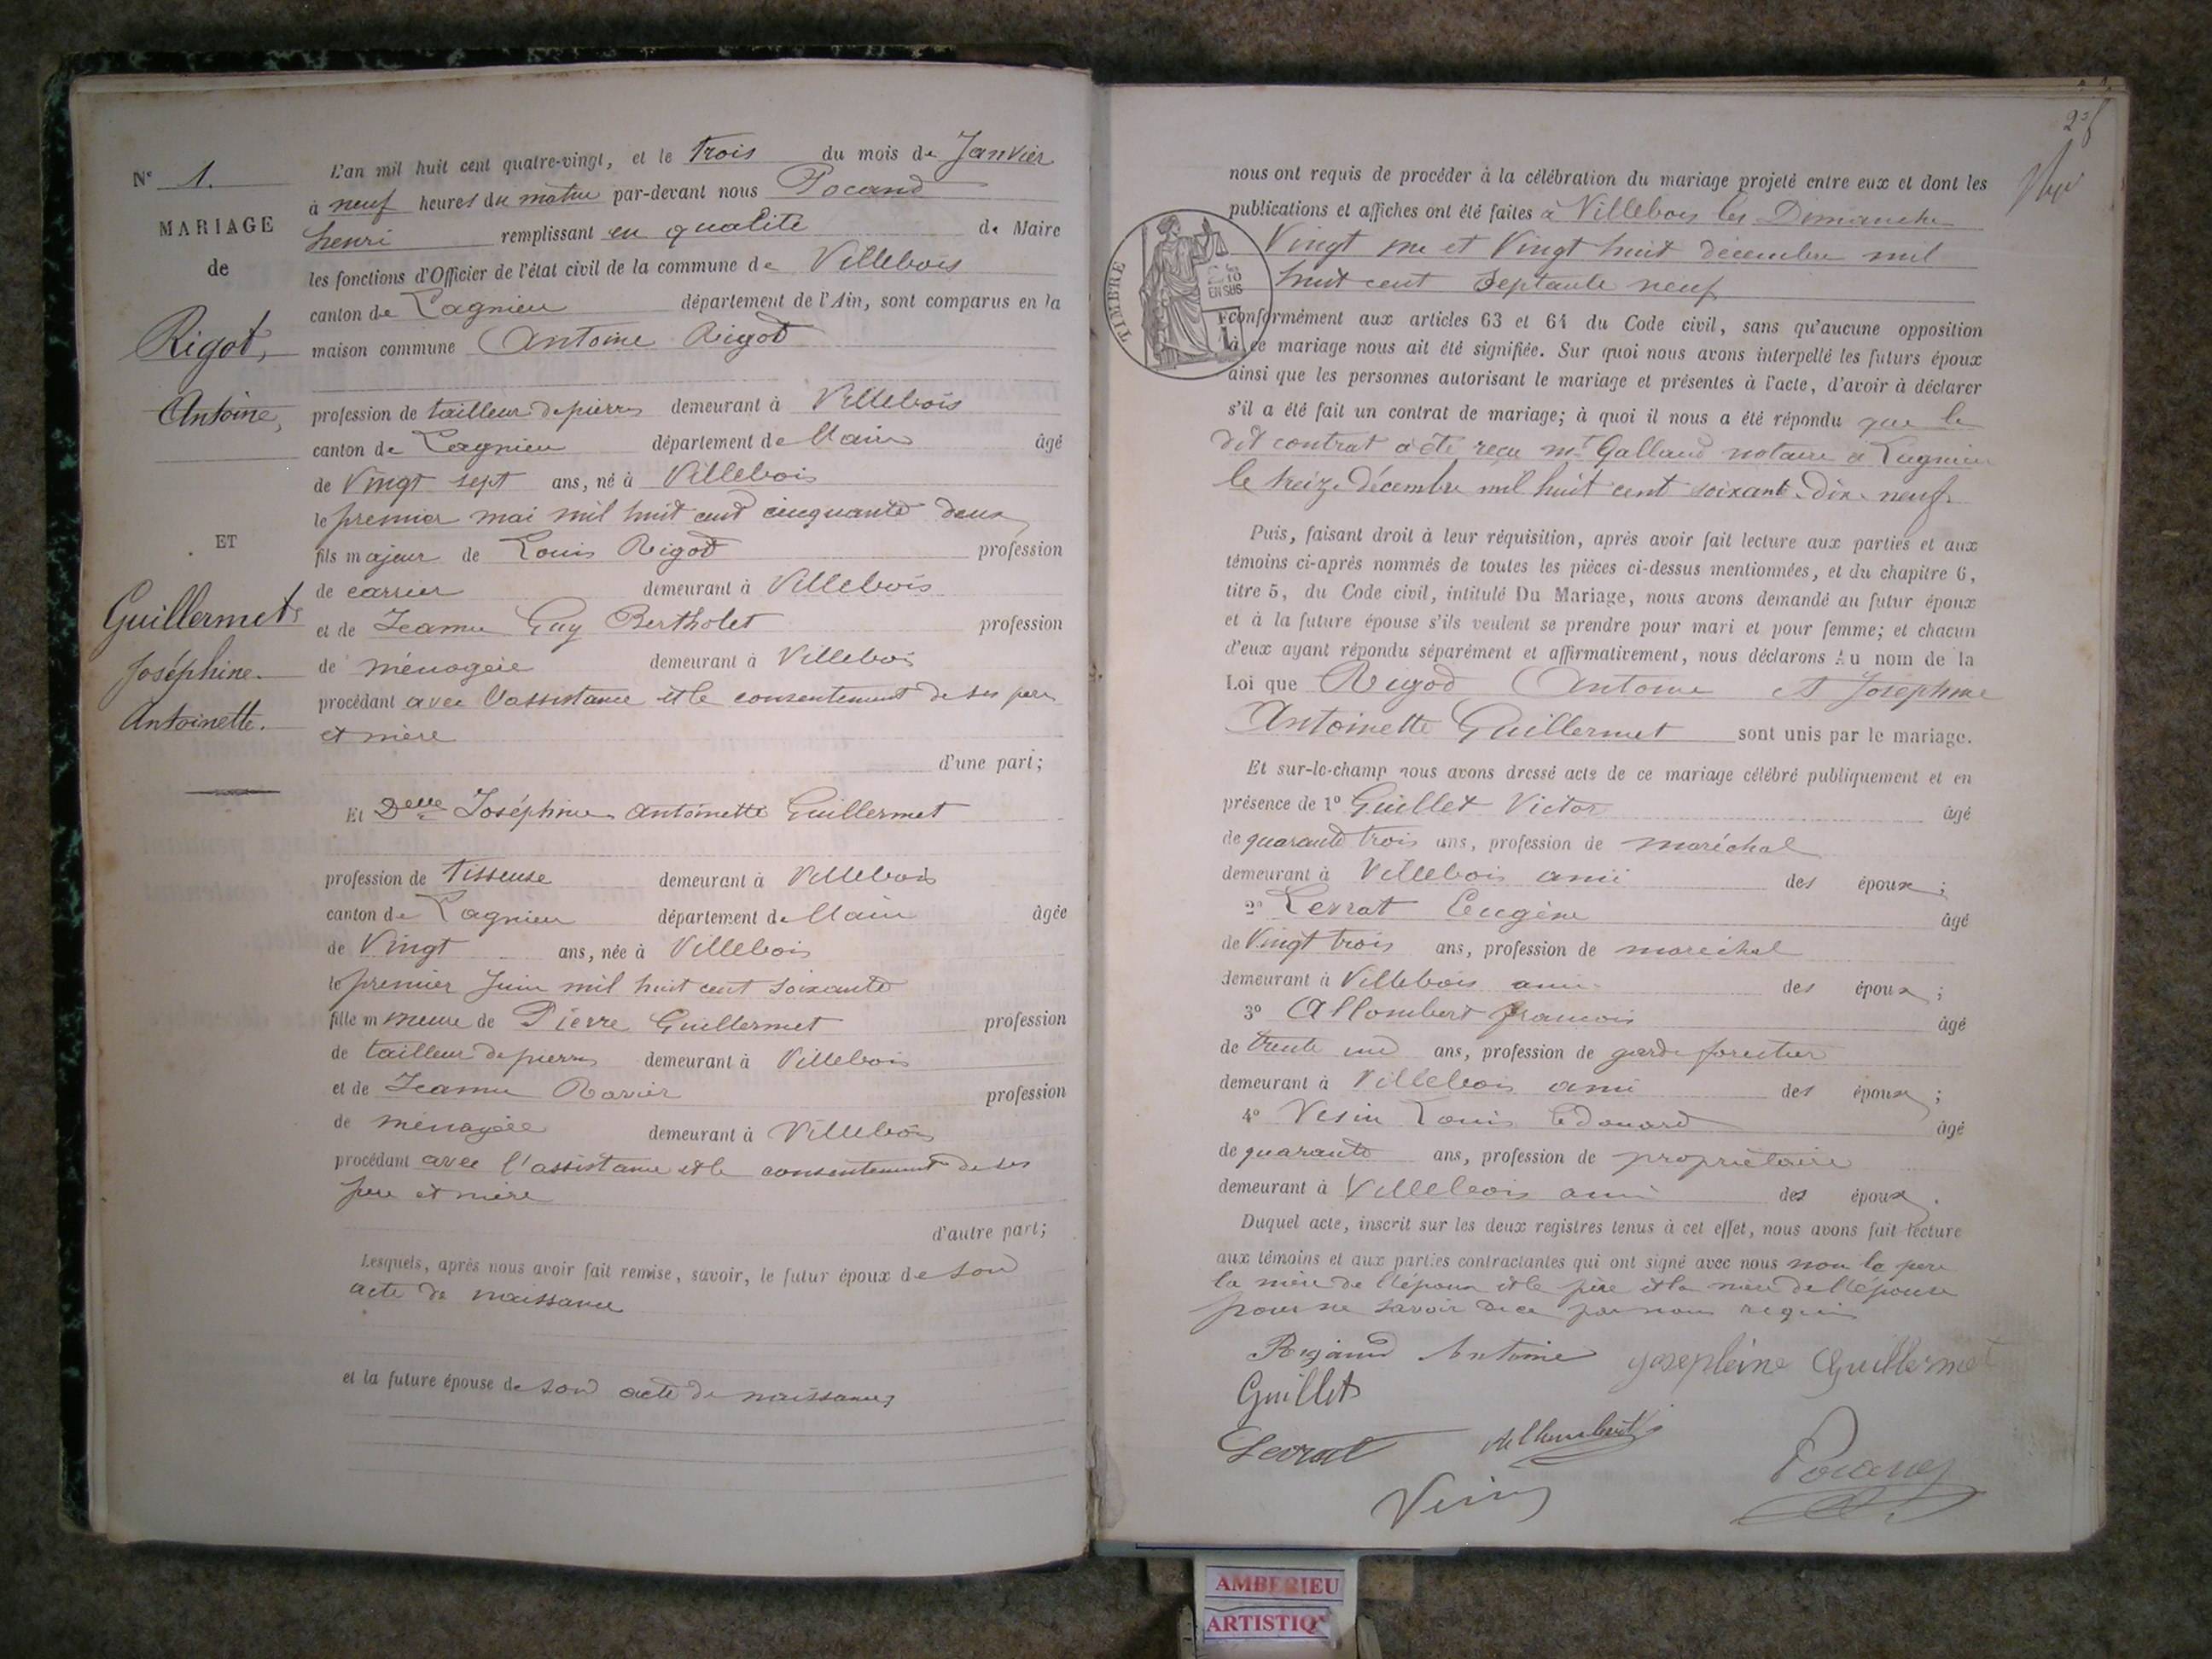 N° 1.
MARIAGE
de
Rigot,
Antoine,
ET
Guillermet
Joséphine
Antoinette.
L'an mil huit cent quatre-vingt, et le trois du mois de Janvier
à neuf heures du matin par-devant nous Pocand
henri remplissant en qualité de Maire
les fonctions d'Officier de l'état civil de la commune de Villebois
canton de Lagnieu département de l'Ain, sont comparus en la
maison commune Antoine Rigot
profession de tailleur de pierres demeurant à Villebois
canton de Lagnieu département de l'ain âgé
de Vingt sept ans, né à Villebois
le premier mai mil huit cent cinquante deux
fils majeur de Louis Rigot profession
de carrier demeurant à Villebois
et de Jeanne Guy Bertholet profession
de ménagère demeurant à Villebois
procédant avec l'assistance et le consentement de ses père
et mère
d'une part;
Et Delle Joséphine Antoinette Guillermet
profession de Tisseuse demeurant à Villebois
canton de Lagnieu département de l'ain âgée
de Vingt ans, née à Villebois
le premier Juin mil huit cent soixante
fille mineure de Pierre Guillermet profession
de tailleur de pierres demeurant à Villebois
et de Jeanne Ravier profession
de ménagère demeurant à Villebois
procédant avec l'assistance et le consentement de ses
père et mère
d'autre part;
Lesquels, après nous avoir fait remise, savoir, le futur époux de son
acte de naissance
et la future épouse de son acte de naissance
nous ont requis de procéder à la célébration du mariage projeté entre eux et dont les
publications et affiches ont été faites à Villebois les Dimanche
Vingt un et Vingt huit décembre mil
huit cent septante neuf
TIMBRE
EN SUS
conformément aux articles 63 et 64 du Code civil, sans qu'aucune opposition
à ce mariage nous ait été signifiée. Sur quoi nous avons interpellé les futurs époux
ainsi que les personnes autorisant le mariage et présentes à l'acte, d'avoir à déclarer
s'il a été fait un contrat de mariage; à quoi il nous a été répondu que le
dit contrat a été reçu mt Galland notaire à Lagnieu
le treize décembre mil huit cent soixante-dix-neuf.
Puis, faisant droit à leur réquisition, après avoir fait lecture aux parties et aux
témoins ci-après nommés de toutes les pièces ci-dessus mentionnées, et du chapitre 6,
titre 5, du Code civil, intitulé Du Mariage, nous avons demandé au futur époux
et à la future épouse s'ils veulent se prendre pour mari et pour femme; et chacun
d'eux ayant répondu séparément et affirmativement, nous déclarons Au nom de la
Loi que Rigod Antoine et Joséphine
Antoinette Guillermet sont unis par le mariage.
Et sur-le-champ nous avons dressé acte de ce mariage célébré publiquement et en
présence de 1° Guillet Victor âgé
de quarante trois ans, profession de maréchal
demeurant à Villebois ami des époux;
2° Levrat Eugène âgé
de Vingt trois ans, profession de maréchal
demeurant à Villebois ami des époux;
3° Allombert francois âgé
de trente un ans, profession de garde forestier
demeurant à Villebois ami des époux;
4° Vesin Louis Edouard âgé
de quarante ans, profession de propriétaire
demeurant à Villebois ami des époux.
Duquel acte, inscrit sur les deux registres tenus à cet effet, nous avons fait lecture
aux témoins et aux parties contractantes qui ont signé avec nous non le père
la mère de l'époux et le père et la mère de l'épouse
pour ne savoir de ce par nous requis
Antoine Josephine Guillermet
Guillet
Levrat
Vesin
Pocand
AMBERIEU
ARTISTIQ